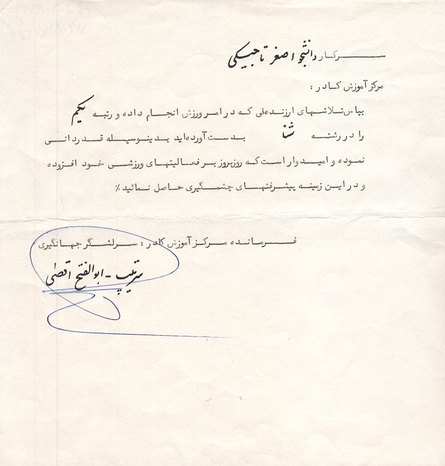 سرکار دانشجو اصغر تاجبیکی
مرکز آموزش کادر :
بپاس تلاشهای ارزنده‌ای که در امر ورزش انجام داده و رتبه یکم
را در رشته شنا بدست آورده‌اید بدینوسیله قدردانی
نموده و امیدوار است که روزبروز بر فعالیتهای ورزشی خود افزوده
و در این زمینه پیشرفتهای چشمگیری حاصل نمائید٪
فرمانده مرکز آموزش کادر : سرلشگر جهانگیری
سرتیپ - ابوالفتح اقصی